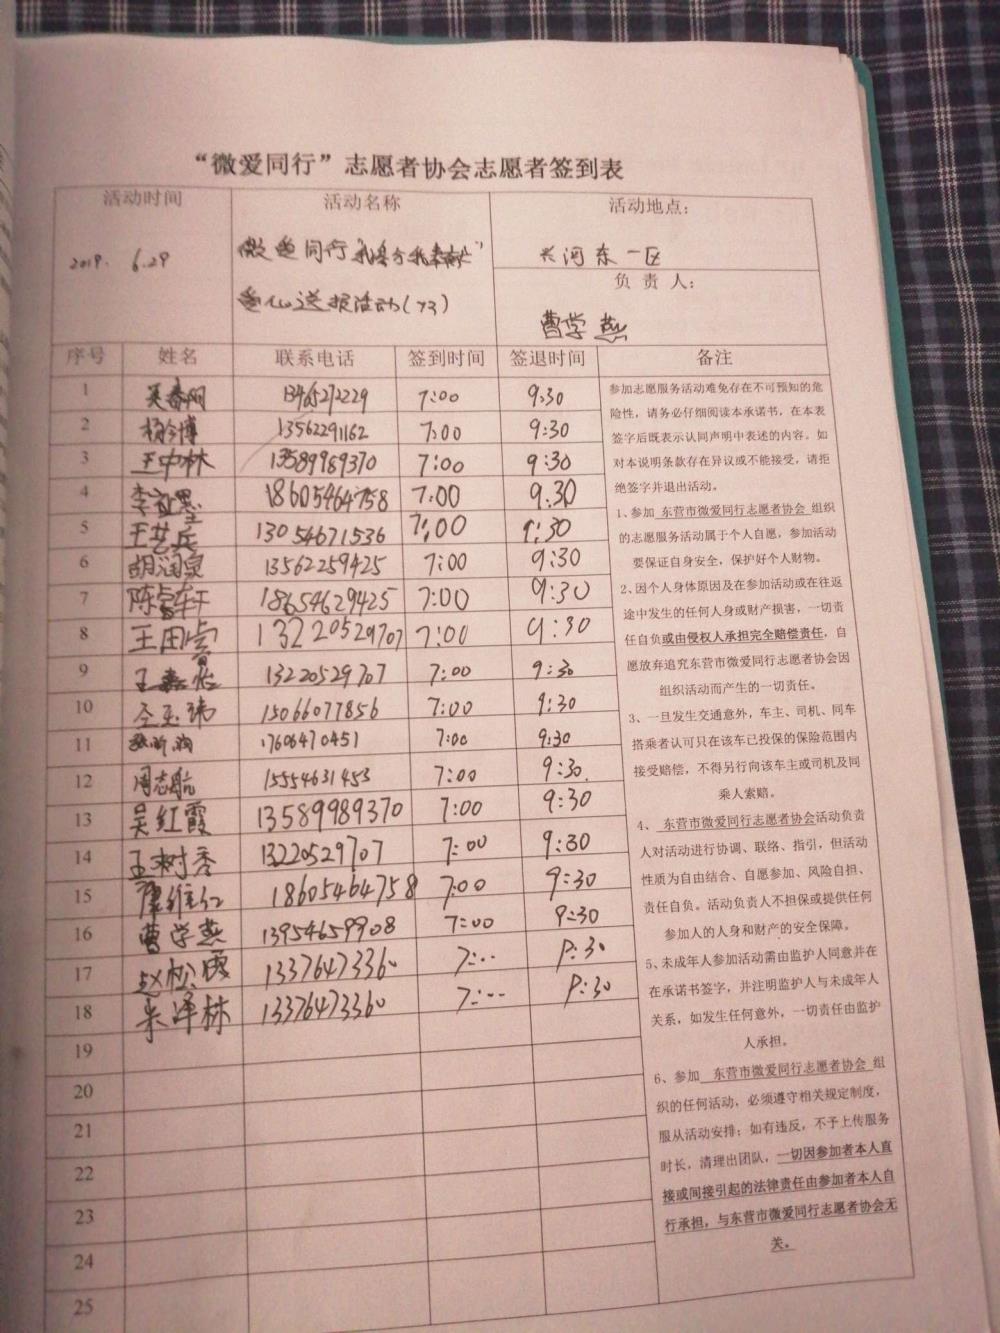 “微爱同行”志愿者协会志愿者签到表
活动时间 活动名称 活动地点：
2019. 6.29 微爱同行
爱心送报活动(73)
长河东一区
负 责 人：
曹学燕
序号 姓名 联系电话 签到时间 签退时间 备注
1 吴春网 13465272229 7:00 9:30
2 杨今博 13562291162 7:00 9:30
3 王中林 13589989370 7:00 9:30
4 18605464758 7:00 9:30
5 王艺兵 13054671536 7:00 9:30
6 胡润泉 13562259425 7:00 9:30
7 18654629425 7:00 9:30
8 13220529707 7:00 9:30
9 13220529707 7:00 9:30
10 15066077856 7:00 9:30
11 17606470451 7:00 9:30
12 周志航 15554631453 7:00 9:30
13 吴红霞 13589989370 7:00 9:30
14 王树秀 13220529707 7:00 9:30
15 康维仁 18605464758 7:00 9:30
16 曹学燕 13954659908 7:00 9:30
17 赵松霞 13376473360 7:00 9:30
18 朱泽林 13376473360 7:00 9:30
19
20
21
22
23
24
25
参加志愿服务活动难免存在不可预知的危
险性，请务必仔细阅读本承诺书，在本表
签字后既表示认同声明中表述的内容。如
对本说明条款存在异议或不能接受，请拒
绝签字并退出活动。
1、参加 东营市微爱同行志愿者协会 组织
的志愿服务活动属于个人自愿，参加活动
要保证自身安全，保护好个人财物。
2、因个人身体原因及在参加活动或在往返
途中发生的任何人身或财产损害，一切责
任自负或由侵权人承担完全赔偿责任，自
愿放弃追究东营市微爱同行志愿者协会因
组织活动而产生的一切责任。
3、一旦发生交通意外，车主、司机、同车
搭乘者认可只在该车已投保的保险范围内
接受赔偿，不得另行向该车主或司机及同
乘人索赔。
4、 东营市微爱同行志愿者协会活动负责
人对活动进行协调、联络、指引，但活动
性质为自由结合、自愿参加、风险自担、
责任自负。活动负责人不担保或提供任何
参加人的人身和财产的安全保障。
5、未成年人参加活动需由监护人同意并在
在承诺书签字，并注明监护人与未成年人
关系，如发生任何意外，一切责任由监护
人承担。
6、参加 东营市微爱同行志愿者协会 组
织的任何活动，必须遵守相关规定制度，
服从活动安排；如有违反，不予上传服务
时长，清理出团队，一切因参加者本人直
接或间接引起的法律责任由参加者本人自
行承担，与东营市微爱同行志愿者协会无
关。